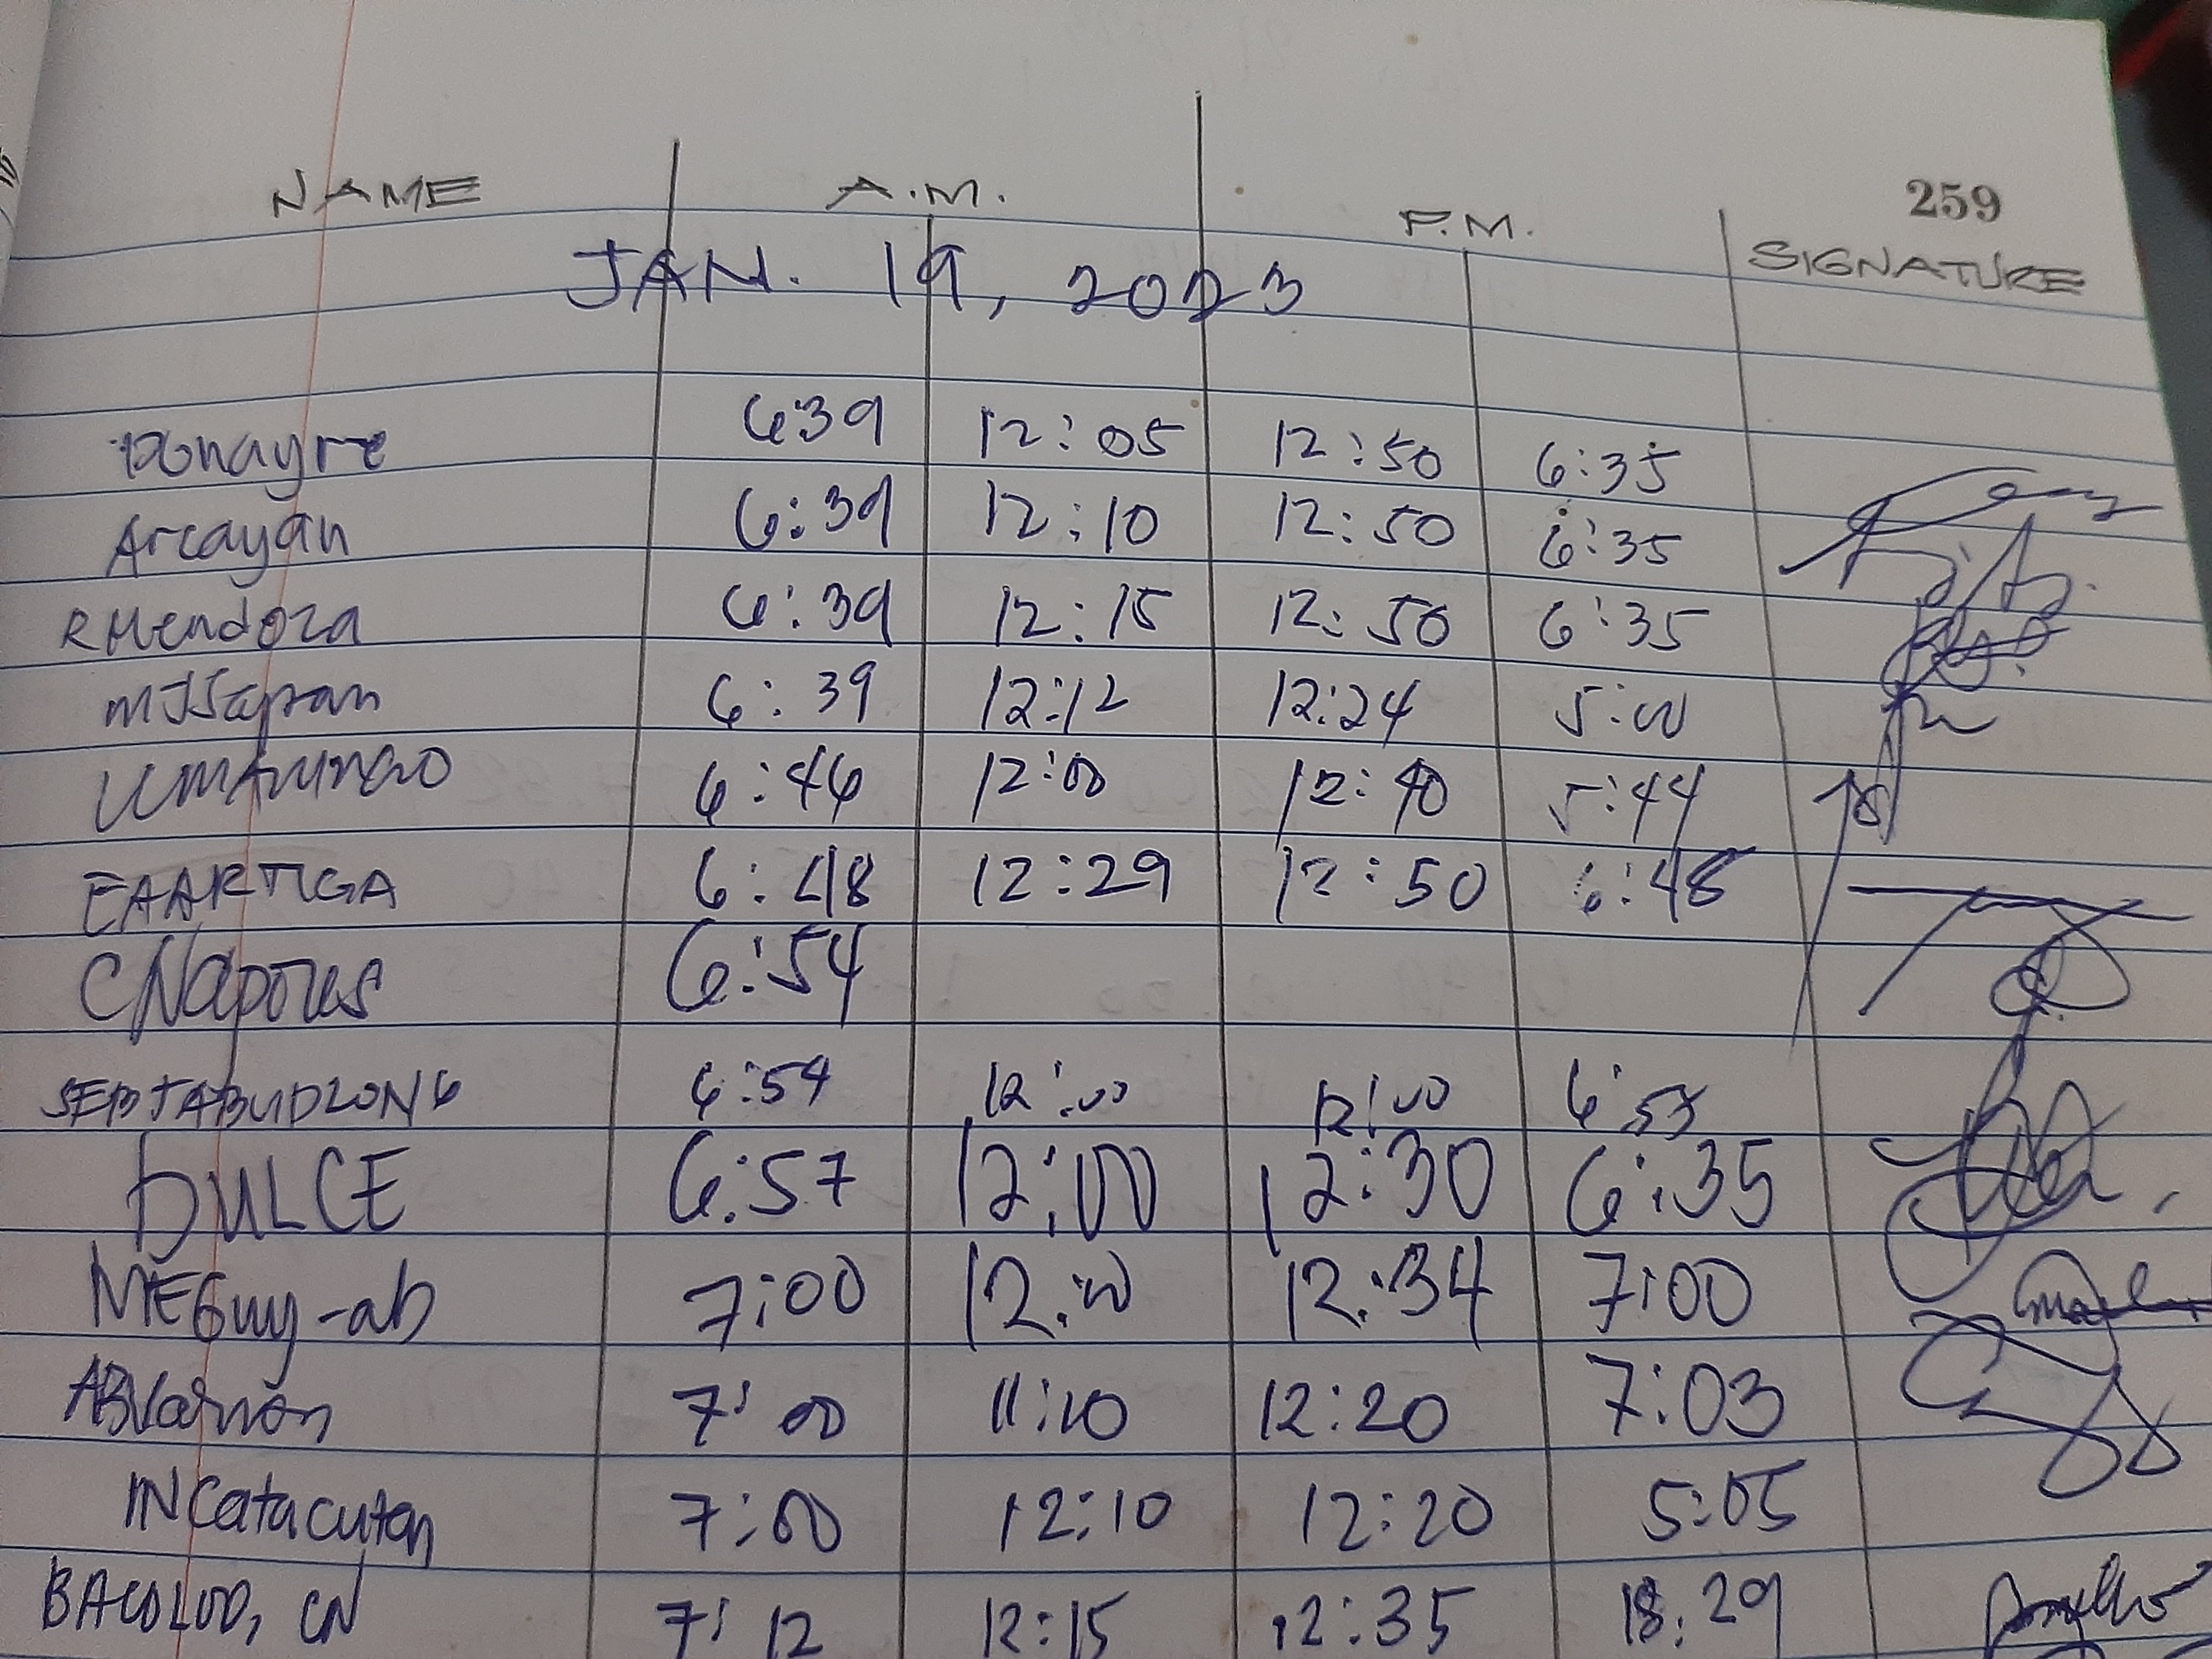 259
NAME A.M. P.M. SIGNATURE
JAN. 19, 2023
Donayre 6:39 12:05 12:50 6:35
Arcayan 6:39 12:10 12:50 6:35
RMendoza 6:39 12:15 12:50 6:35
6:39 12:12 12:24 5:00
6:46 12:00 12:40 5:44
EAARTIGA 6:48 12:29 12:50 6:48
CNapoles 6:54
6:54 12:00 12:00 6:53
DULCE 6:57 12:00 12:30 6:35
MEGuy-ab 7:00 12:00 12:34 7:00
7:00 11:10 12:20 7:03
INCatacutan 7:00 12:10 12:20 5:05
BACOLOD, CN 7:12 12:15 12:35 18:29